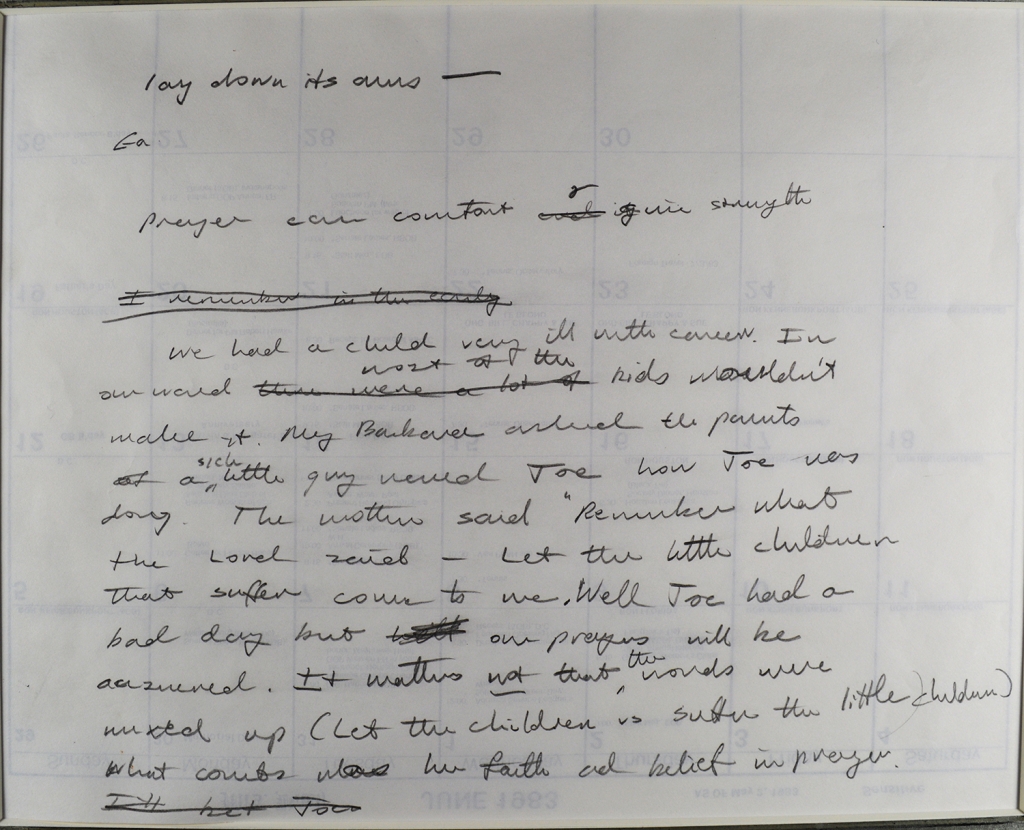 lay down its arms —
Ea
prayer can comfort & give strength
I remember in the early
We had a child very ill with cancer. In
most of the
our ward there were a lot of kids wouldn't
make it. My Barbara asked the parents
sick
of a little guy named Joe how Joe was
doing. The mother said "Remember what
the Lord said — Let the little children
that suffer come to me. Well Joe had a
bad day but our prayers will be
answered. It matters not that the words were
mixed up (Let the children vs suffer the little children)
What counts was her faith and belief in prayer.
I'll bet Joe
JUNE 1983